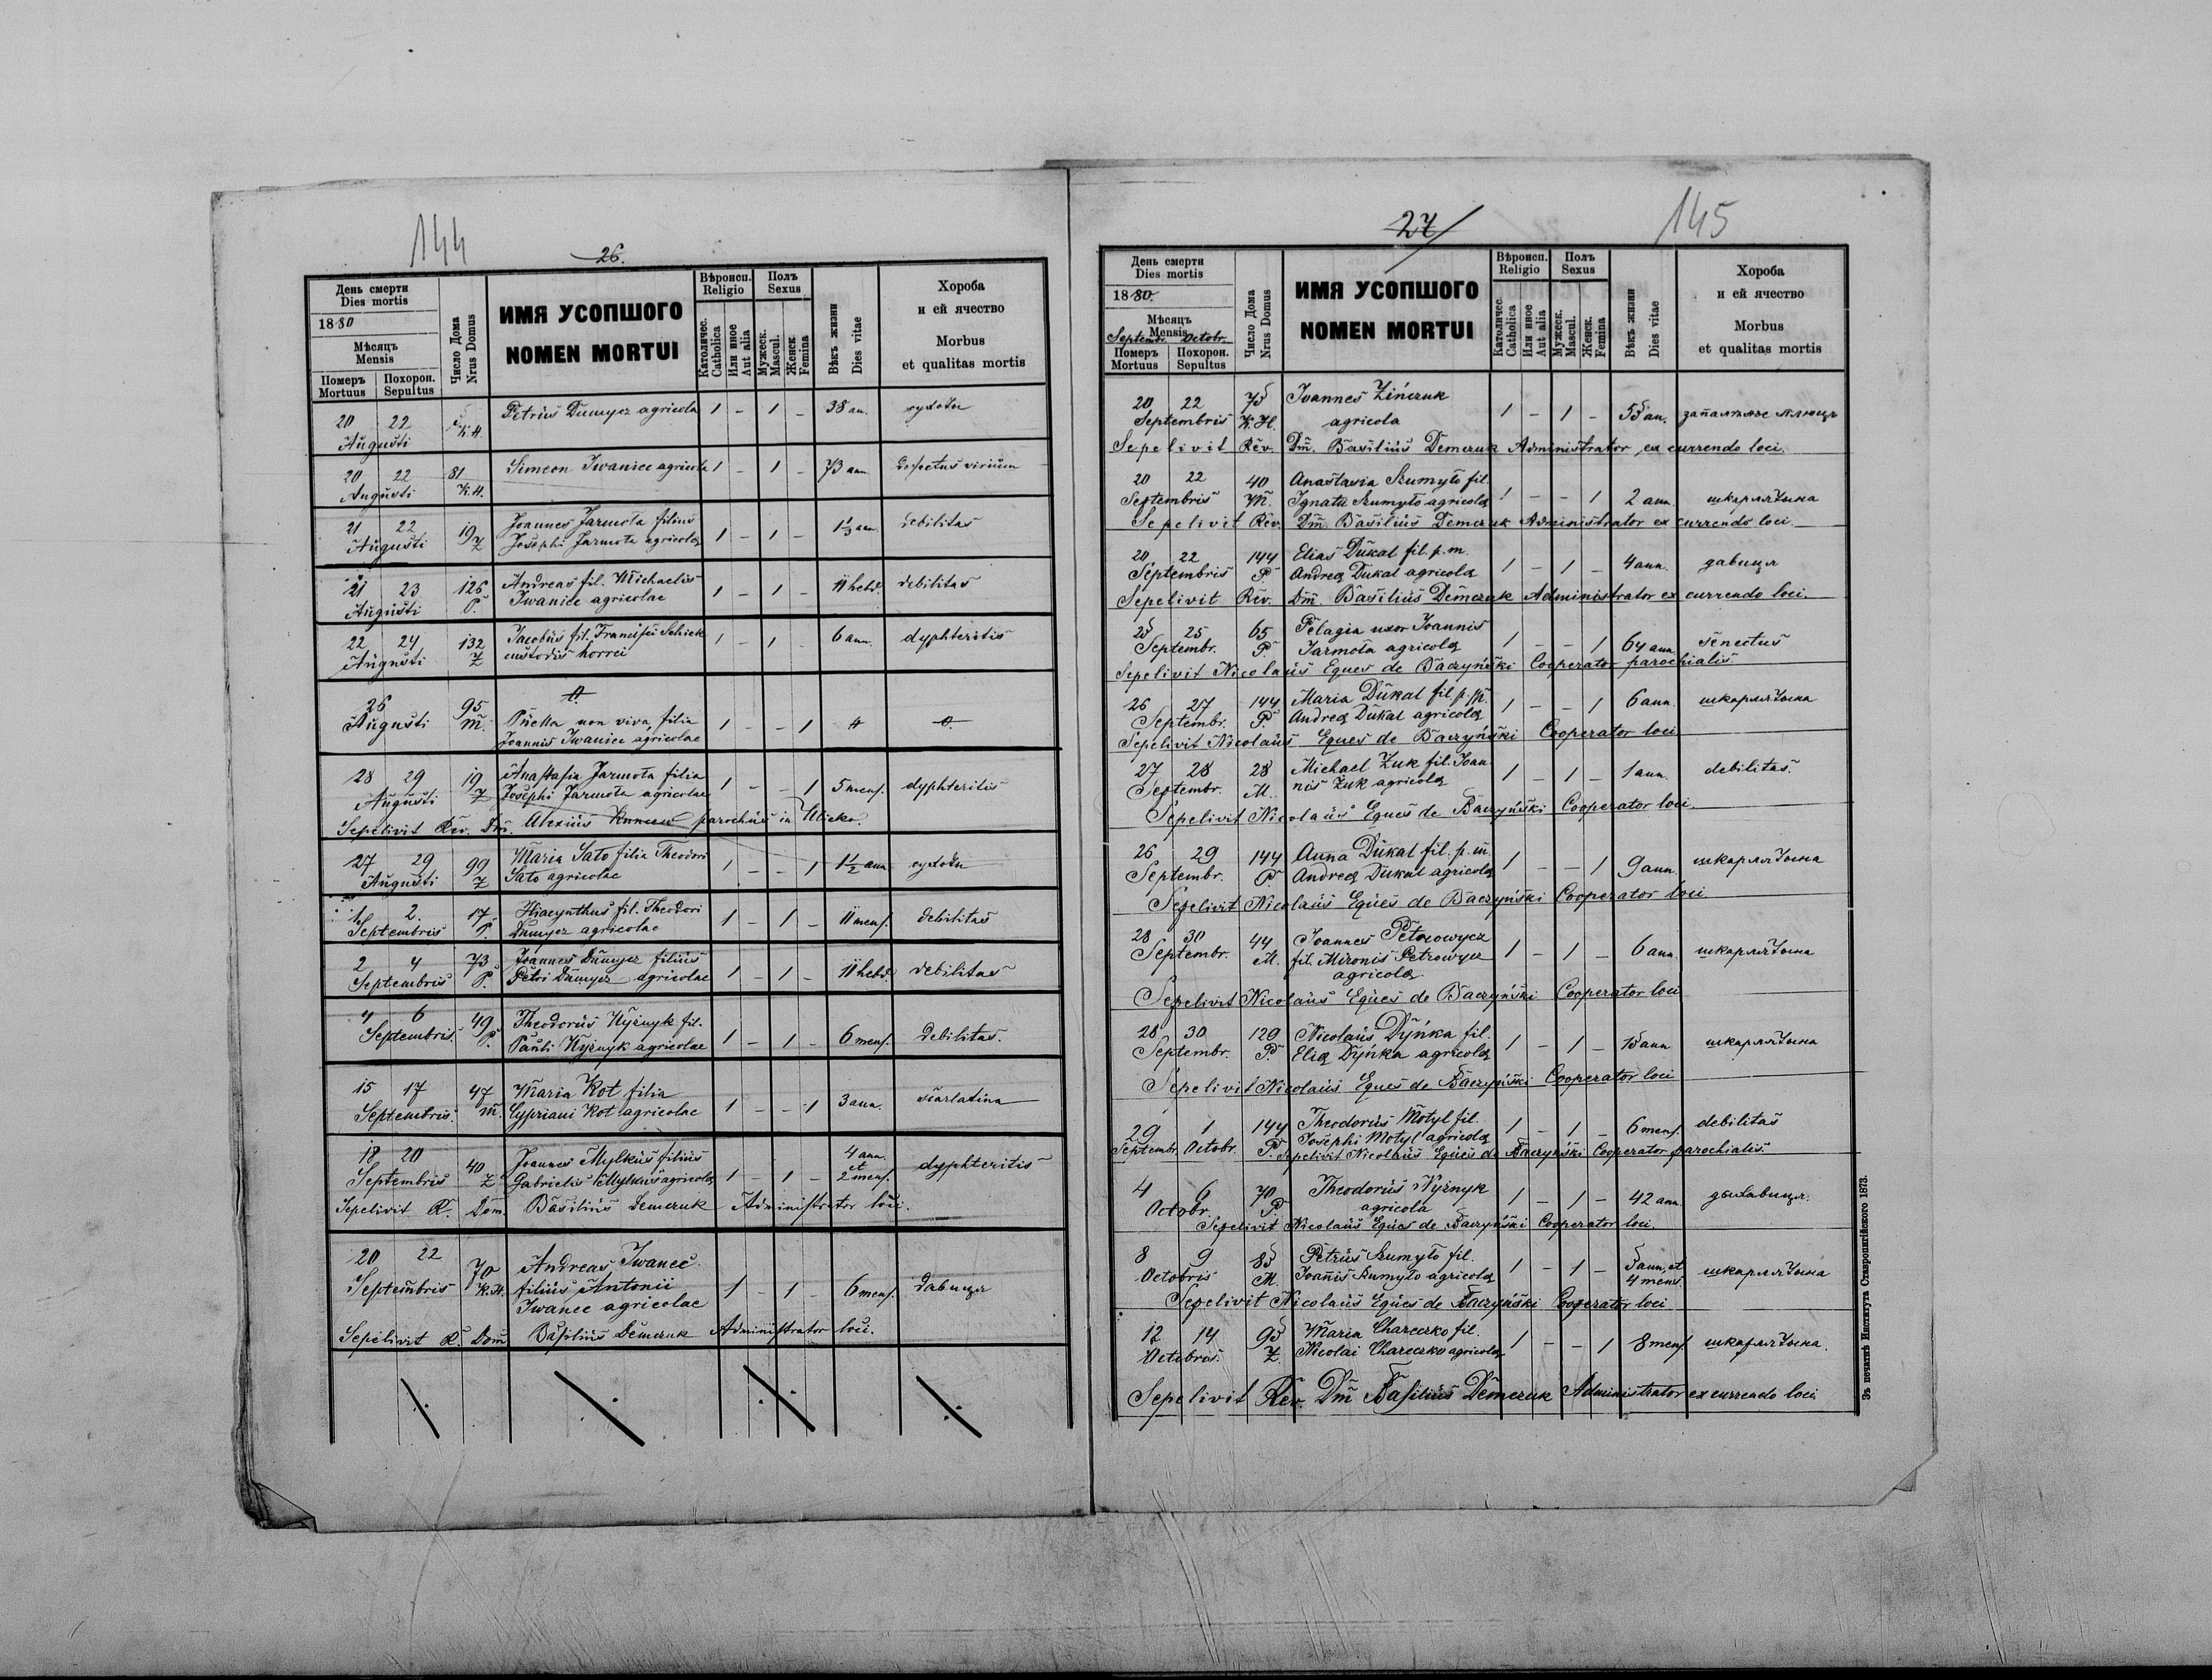 144
26.
День смерти
Dies mortis
1880
Мѣсяцъ
Mensis
Померъ Похорон.
Mortuus Sepultus
Число Дома
Nrus Domus
ИМЯ УСОПШОГО
NOMEN MORTUI
Вѣроисп.
Religio
Католичес.
Catholica
Или иное
Aut alia
Полъ
Sexus
Мужеск.
Mascul.
Женск.
Femina
Вѣкъ жизни
Dies vitae
Хороба
и ей ячество
Morbus
et qualitas mortis
20 22 K.H. Petrus Dumycz agricola 1 - 1 - 38 an. сухоты
Augusti
20 22 81 Simeon Iwaniec agricola 1 - 1 - 73 ann defectus virium
Augusti K.H.
21 22 19 Joannes Jarmota filius 1 - 1 - 1 1/3 ann. debilitas
Augusti Z Josephi Jarmota agricolae
21 23 126 Andreas fil. Michaelis 1 - 1 - 11 hebd. debilitas
Augusti P. Iwaniec agricolae
22 24 132 Jacobus fil. Francisci Schick 1 - 1 - 6 ann. dyphteritis
Augusti Z custodis horrei
26 95
Augusti M. Puella non viva filia 1 - - 1
Joannis Iwaniec agricolae
28 29 19 Anastasia Jarmota filia 1 - - 1 5 mens. dyphteritis
Augusti Z Josephi Jarmota agricolae
Sepelivit Rev. Dm. Alexius parochus in Ulicko.
27 29 99 Maria Sato filia Theodori 1 - - 1 1 1/2 ann сухоты
Augusti Z Sato agricolae
1 2. 17 Hiacynthus fil. Theodori 1 - 1 - 11 mens. debilitas
Septembris P. Dumycz agricolae
2 4 73 Joannes Dumycz filius 1 - 1 - 11 hebd. debilitas
Septembris P. Petri Dumycz agricolae
4 6 49 Theodorus Wyżnyk fil. 1 - 1 - 6 mens. debilitas.
Septembris P. Pauli Wyżnyk agricolae
15 17 47 Maria Kot filia 1 - - 1 3 ann. scarlatina
Septembris M. Cypriani Kot agricolae
18 20 40 Joannes Mylkus filius 1 - 1 - 4 ann. et 2 mens. dyphteritis
Septembris Z Gabrielis Mylkus agricolae
Sepelivit R. Dom. Basilius Demczuk Administrator loci.
20 22 70 Andreas Iwanec 1 - 1 - 6 mens. давиця
Septembris K.H. filius Antonii
Iwanec agricolae
Sepelivit R. Dom Basilius Demczuk Administrator loci.
27
145
День смерти
Dies mortis
1880.
Мѣсяцъ
Mensis
Septembr. Octobr.
Померъ Похорон.
Mortuus Sepultus
Число Дома
Nrus Domus
ИМЯ УСОПШОГО
NOMEN MORTUI
Вѣроисп.
Religio
Католичес.
Catholica
Или иное
Aut alia
Полъ
Sexus
Мужеск.
Mascul.
Женск.
Femina
Вѣкъ жизни
Dies vitae
Хороба
и ей ячество
Morbus
et qualitas mortis
20 22 75 Joannes Zińczuk 1 - 1 - 55 an.
Septembris K.H. agricola
Sepelivit Rev. Dm. Basilius Demczuk Administrator ex currendo loci.
20 22 40 Anastasia Szumyło fil. 1 - - 1 2 ann. шкарлятына
Septembris M. Ignatii Szumyło agricolae
Sepelivit Rev. Dm. Basilius Demczuk Administrator ex currendo loci.
20 22 144 Elias Dukal fil. p. m. 1 - 1 - 4 ann. давиця
Septembris P. Andreae Dukal agricolae
Sepelivit Rev. Dm. Basilius Demczuk Administrator ex currendo loci.
25 65 Pelagia uxor Joannis 1 - - 1 64 ann. senectus
Septembr. P. Jarmota agricolae
Sepelivit Nicolaus Eques de Baczyński Cooperator parochialis
26 27 144 Maria Dukal fil. p. m. 1 - - 1 6 ann. шкарлятына
Septembr. P. Andreae Dukal agricolae
Sepelivit Nicolaus Eques de Baczyński Cooperator loci
27 28 28 Michael Zuk fil. Joan 1 - 1 - 1 ann. debilitas.
Septembr. M. nis Zuk agricolae
Sepelivit Nicolaus Eques de Baczyński Cooperator loci.
26 29 144 Anna Dukal fil. p. m. 1 - - 1 9 ann. шкарлятына
Septembr. P. Andreae Dukal agricolae
Sepelivit Nicolaus Eques de Baczyński Cooperator loci.
28 30 44 Joannes Petrowycz 1 - 1 - 6 ann. шкарлятына
Septembr. M. fil. Mironis Petrowycz
agricolae
Sepelivit Nicolaus Eques de Baczyński Cooperator loci
28 30 129 Nicolaus Dyńka fil. 1 - 1 - 15 ann шкарлятына
Septembr. P. Eliae Dyńka agricolae
Sepelivit Nicolaus Eques de Baczyński Cooperator loci
29 1 144 Theodorus Motyl fil. 1 - 1 - 6 mens. debilitas
Septembr. Octobr. P. Josephi Motyl agricolae
Sepelivit Nicolaus Eques de Baczyński Cooperator parochialis.
4 6 70 Theodorus Wyżnyk 1 - 1 - 42 ann.
Octobr. P. agricola
Sepelivit Nicolaus Eques de Baczyński Cooperator loci.
8 9 85 Petrus Szumyło fil. 1 - 1 - 5 ann. et 4 mens. шкарлятына
Octobris M. Joanis Szumyło agricolae
Sepelivit Nicolaus Eques de Baczyński Cooperator loci
12 14 95 Maria Chareczko fil. 1 - - 1 8 mens. шкарлятына.
Octobris. Z. Nicolai Chareczko agricolae
Sepelivit Rev. Dm Basilius Demczuk Administrator ex currendo loci
Зъ печатнѣ Института Ставропигійского 1873.